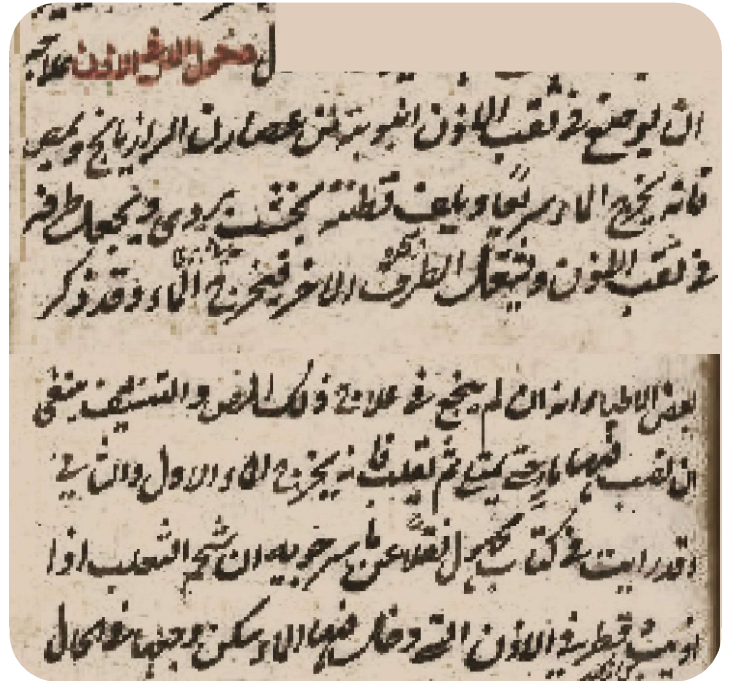 دخول الماء في الاذن علاجه
ان يوضع في ثقب الاذن انبوبة من عصارة الرازيانج ويمص
فانه يخرج الماء سريعا ويلف قطنة بخشب بردي ويجعل طرفه
في ثقب الاذن ويشعل الطرف الاخر فيخرج الماء وقد ذكر
بعض الاطباء انه ان لم ينجح في علاجه ذلك المص والتنشيف ينبغي
ان فيها ثم يقلب فانه يخرج الماء الاول والثاني
اقد رايت في كتاب مجهول نقلا عن ماسرجويه ان شحم الثعلب اذا
اذيب وقطر في الاذن التي دخل فيها الماء سكن وجعها في الحال